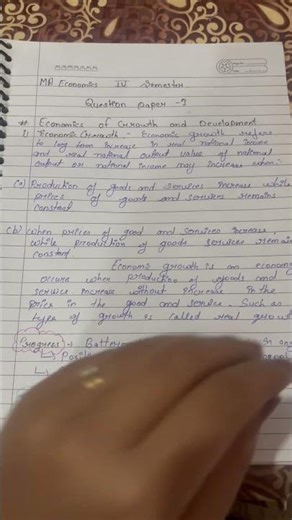 MA Economics IV Semester
Question paper - 7
# Economics of Growth and Development
1) Economic Growth - Economic growth refers
to long term increase in real national income
and real national output value of national
output or national income may increase when:
(a) Production of goods and services increase while
prices of goods and services remains
constant
(b) when prices of good and services increase,
while production of goods services remain
constant
Economic growth is an economy
occurs when production of goods and
service increase without increase in the
price in the good and service. Such as
type of growth is called real grow
Progress